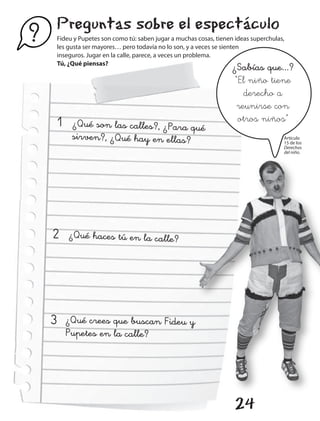 ?
Preguntas sobre el espectáculo
Fideu y Pupetes son como tú: saben jugar a muchas cosas, tienen ideas superchulas,
les gusta ser mayores… pero todavía no lo son, y a veces se sienten
inseguros. Jugar en la calle, parece, a veces un problema.
Tú, ¿Qué piensas?
¿Sabías que...?
"El niño tiene
derecho a
reunirse con
otros niños"
Artículo
15 de los
Derechos
del niño.
1 ¿Qué son las calles?, ¿Para qué
sirven?, ¿Qué hay en ellas?
2 ¿Qué haces tú en la calle?
3 ¿Qué crees que buscan Fideu y
Pupetes en la calle?
24